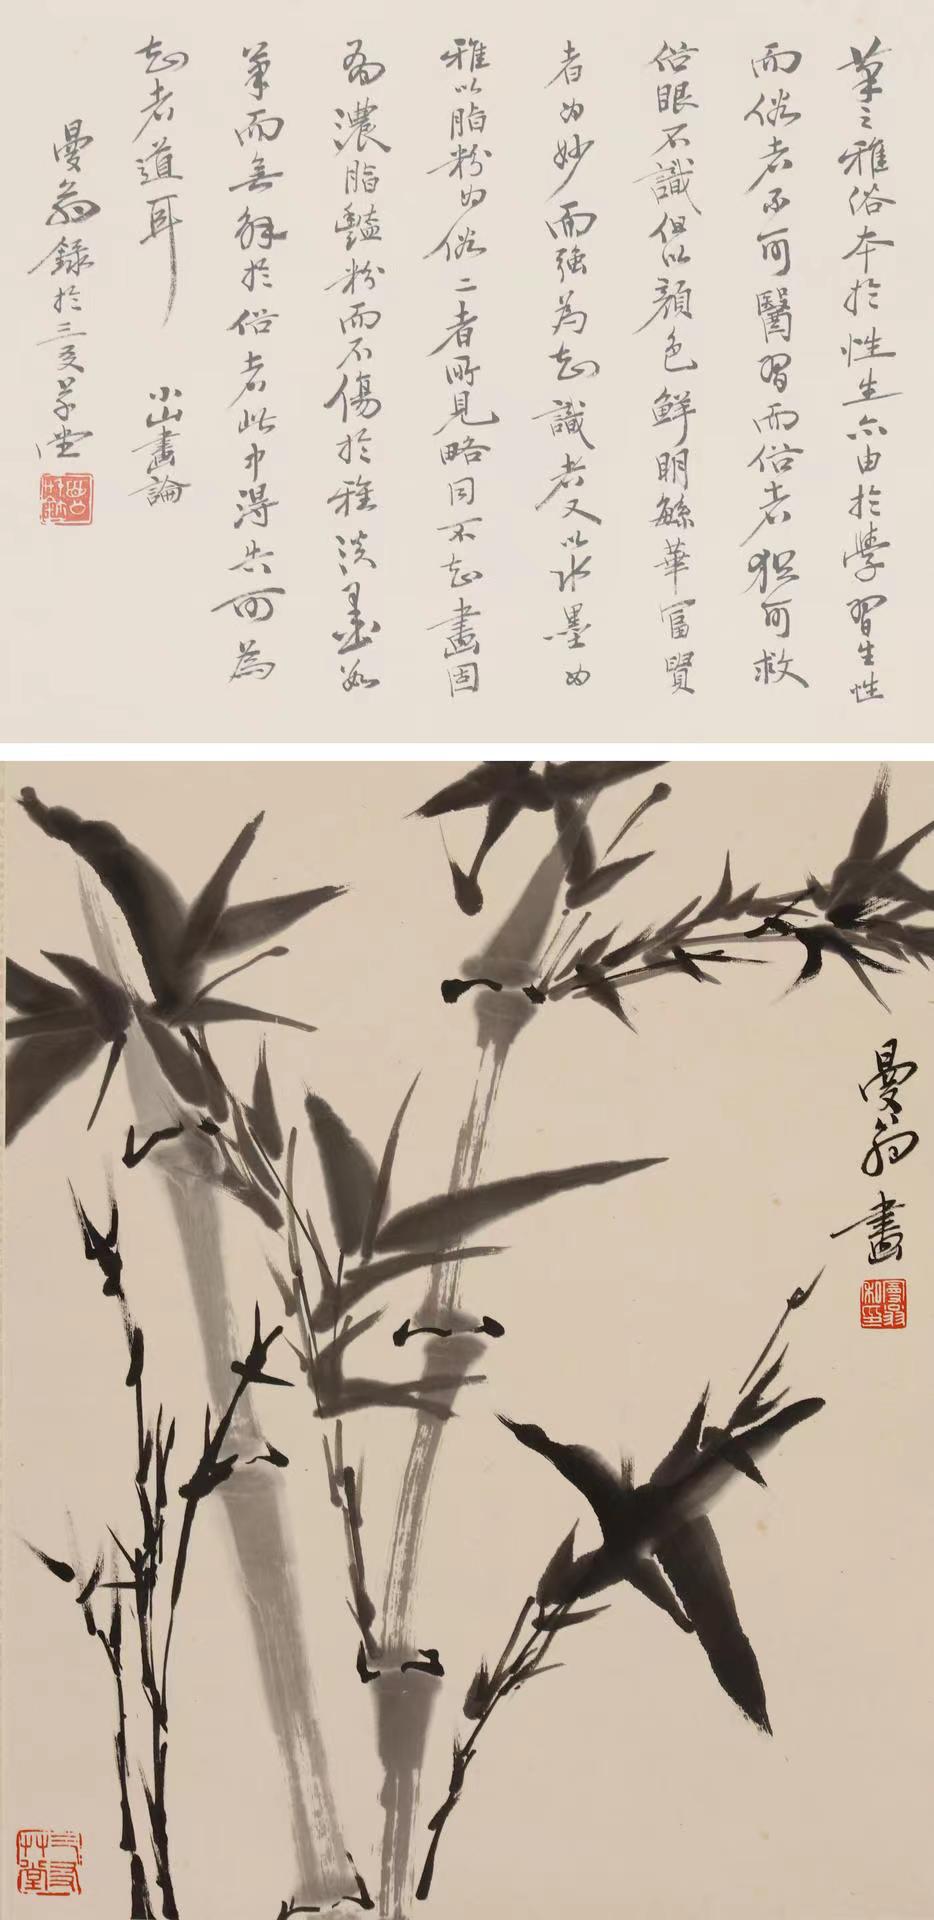 筆之雅俗本於性生亦由於學習生性
而俗者不可醫習而俗者猶可救
俗眼不識但以顏色鮮明繁華富貴
者為妙而強為知識者又以水墨為
雅以脂粉為俗二者所見略同不知畫固
有濃脂豔粉而不傷於雅淡墨數
筆而無解於俗者此中得失可為
知者道耳
小山畫論
曼翁錄於三友草堂
曼翁畫
曼翁
和印
三友
草堂